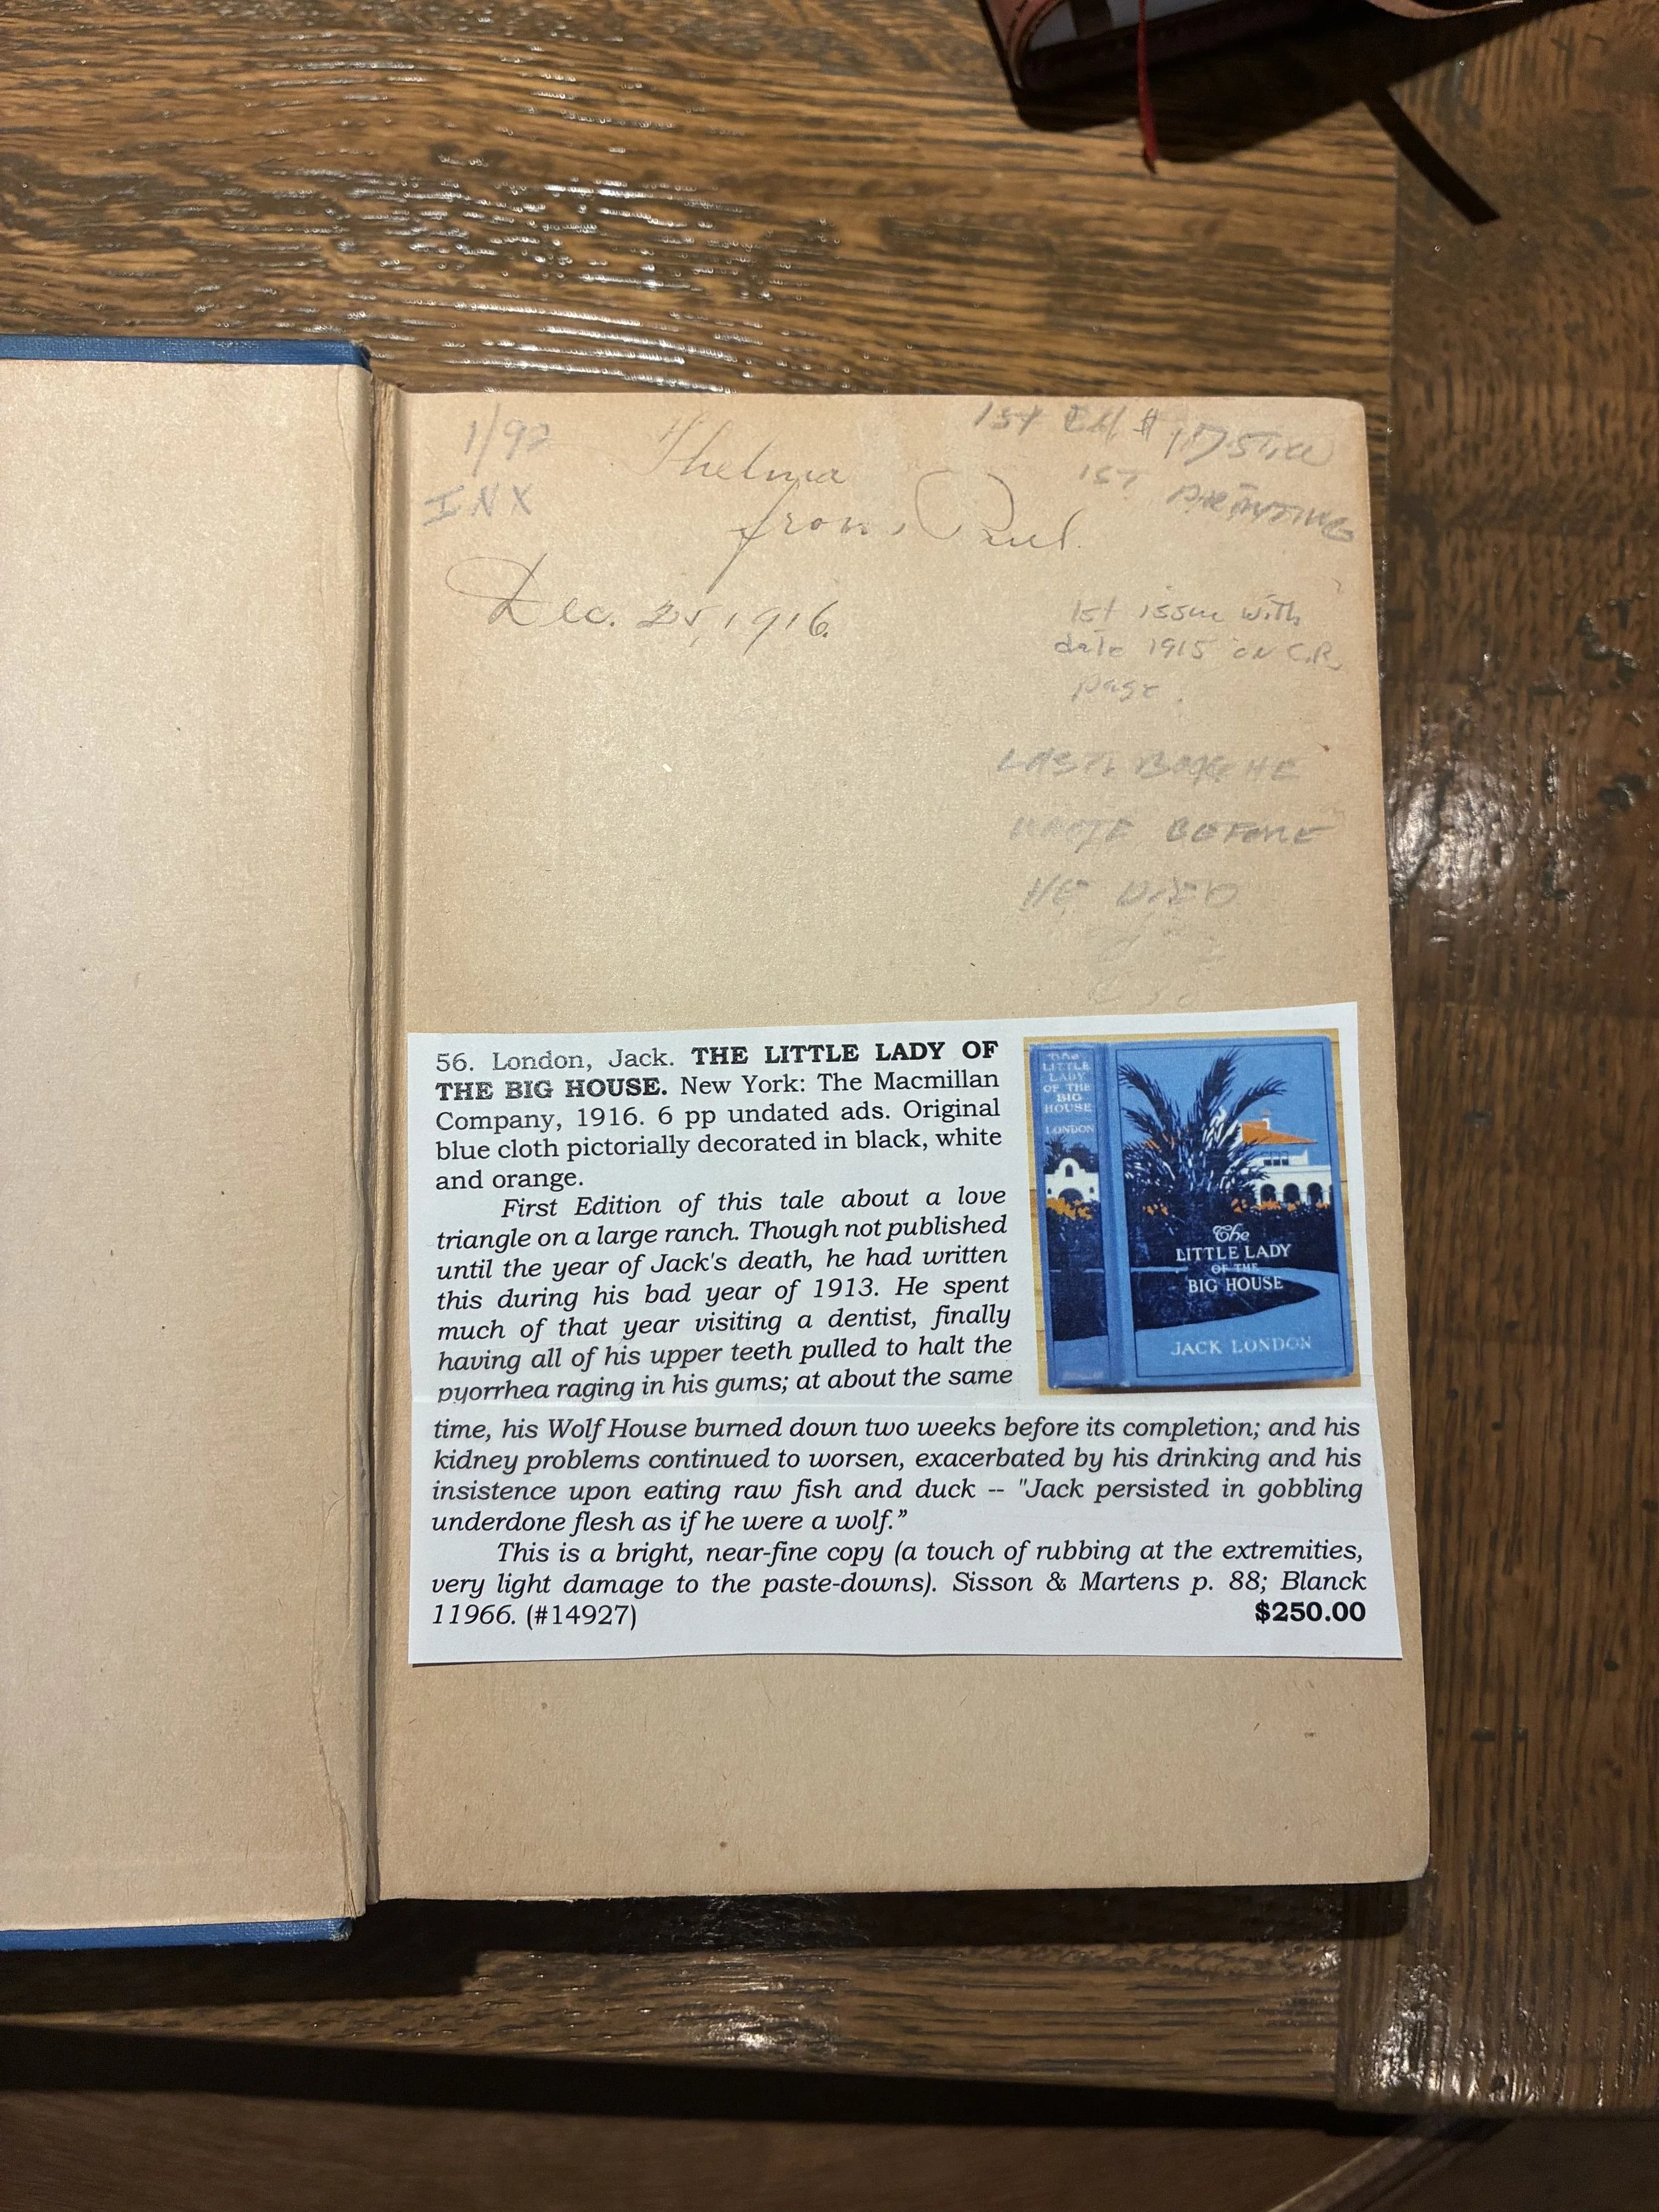 1/92
INX
Thelma
from Paul.
Dec. 25, 1916.
1st Ed $
1ST PRINTING
1st issue with
date 1915 on C.R.
page.
LAST BOOK HE
WROTE BEFORE
HE DIED
56. London, Jack. THE LITTLE LADY OF
THE BIG HOUSE. New York: The Macmillan
Company, 1916. 6 pp undated ads. Original
blue cloth pictorially decorated in black, white
and orange.
First Edition of this tale about a love
triangle on a large ranch. Though not published
until the year of Jack's death, he had written
this during his bad year of 1913. He spent
much of that year visiting a dentist, finally
having all of his upper teeth pulled to halt the
pyorrhea raging in his gums; at about the same
time, his Wolf House burned down two weeks before its completion; and his
kidney problems continued to worsen, exacerbated by his drinking and his
insistence upon eating raw fish and duck -- "Jack persisted in gobbling
underdone flesh as if he were a wolf.”
This is a bright, near-fine copy (a touch of rubbing at the extremities,
very light damage to the paste-downs). Sisson & Martens p. 88; Blanck
11966. (#14927) $250.00
The
LITTLE
LADY
OF THE
BIG
HOUSE
LONDON
The
LITTLE LADY
OF THE
BIG HOUSE
JACK LONDON